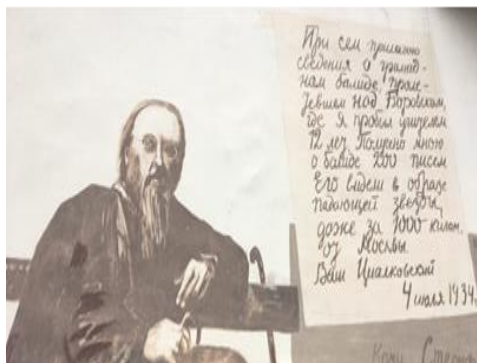 При сем прилагаю
сведения о громад-
ном балиде, проле-
тевшем над Боровском,
где я пробыл учителем
12 лет. Получено мною
о балиде 200 писем
Его видели в образе
падающей звезды,
даже за 1000 килом.
от Москвы
Ваш Циалковский
4 июля 1934.